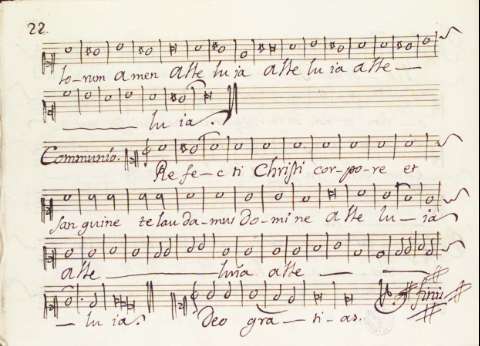 22.
lo-rum amen alle lu ia alle lu ia alle —
— lu ia.
Communio. Re fe-c ti Christi cor-po-re et
san guine te lau da-mus do-mi ne alle lu-ia
alle — luia alle — —
— lu ia. Deo gra-ti-as. finis